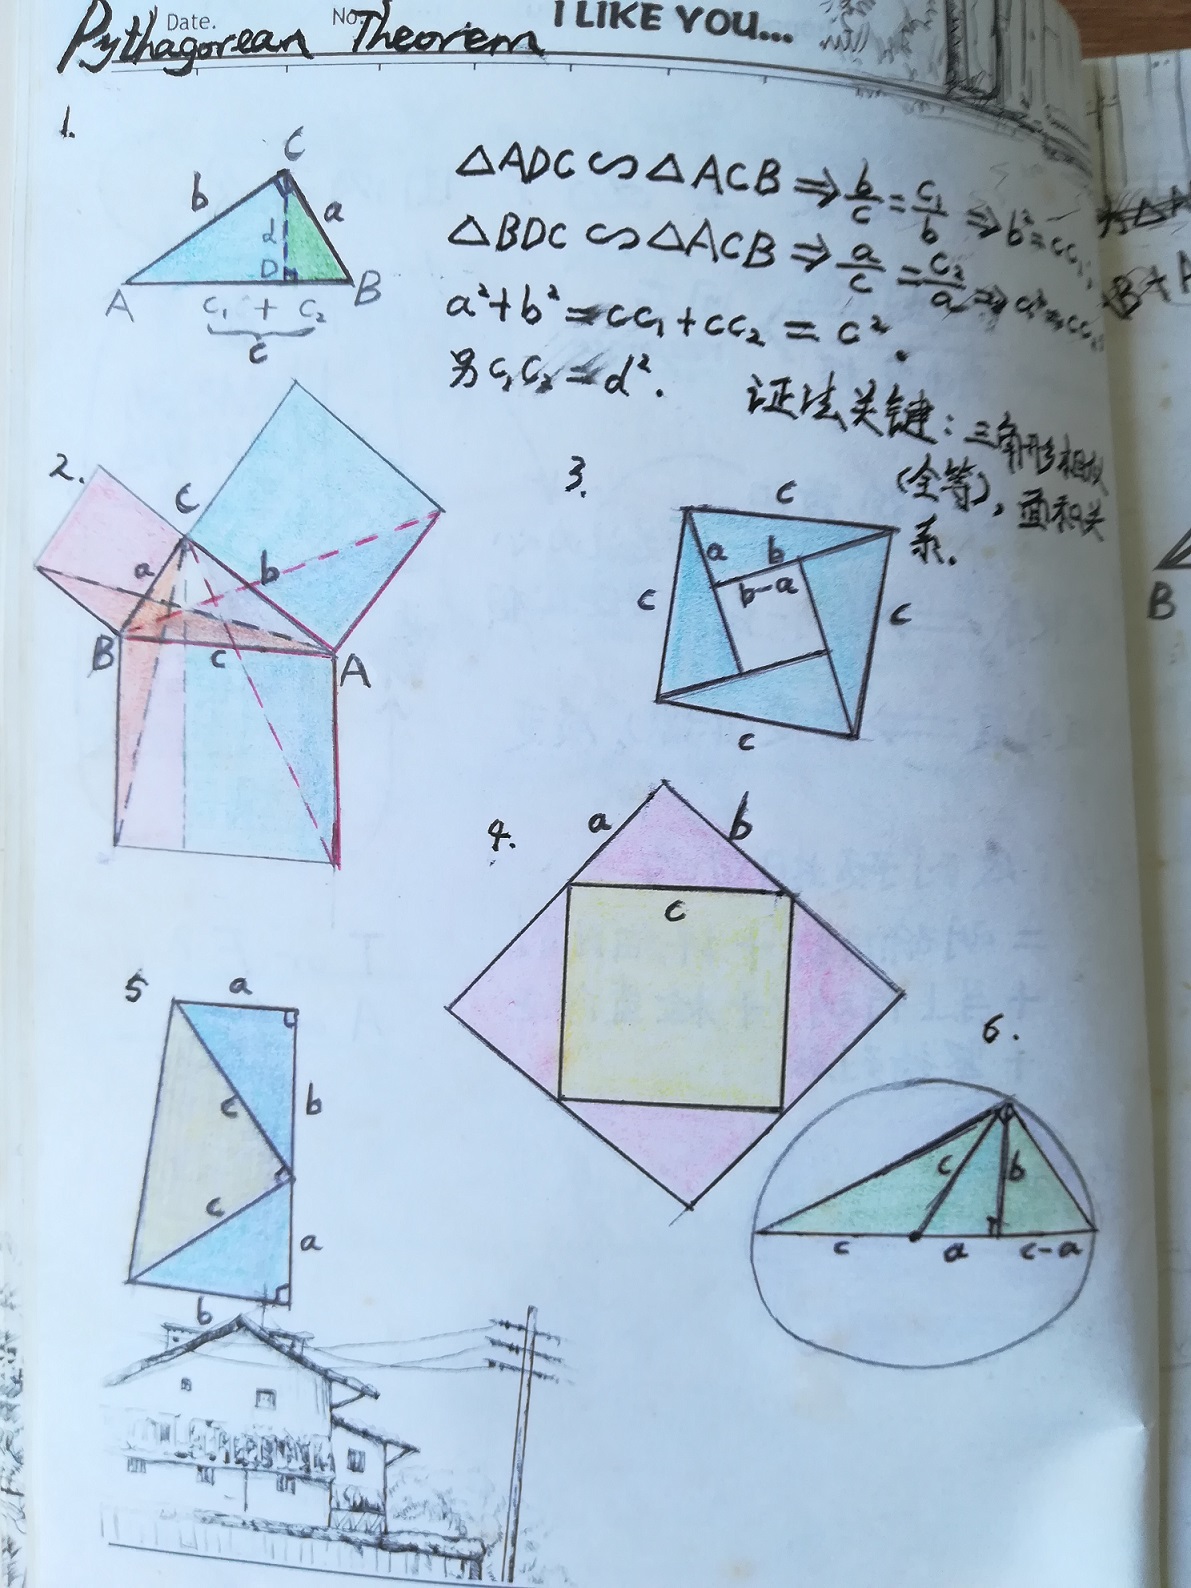 Date. No. I LIKE YOU...
Pythagorean Theorem
1.
C
b a
d
D
A B
c₁ + c₂
c
△ADC∽△ACB⇒b/c=c₁/b⇒b²=cc₁;
△BDC∽△ACB⇒a/c=c₂/a⇒a²=cc₂,
a²+b²=cc₁+cc₂=c².
另c₁c₂=d².
证法关键:三角形相似
(全等),面积关
系.
2.
C
a b
B c A
3.
c
a b
b-a
c c
c
4.
a b
c
5
a
c b
c a
b
6.
c b
c a c-a
B